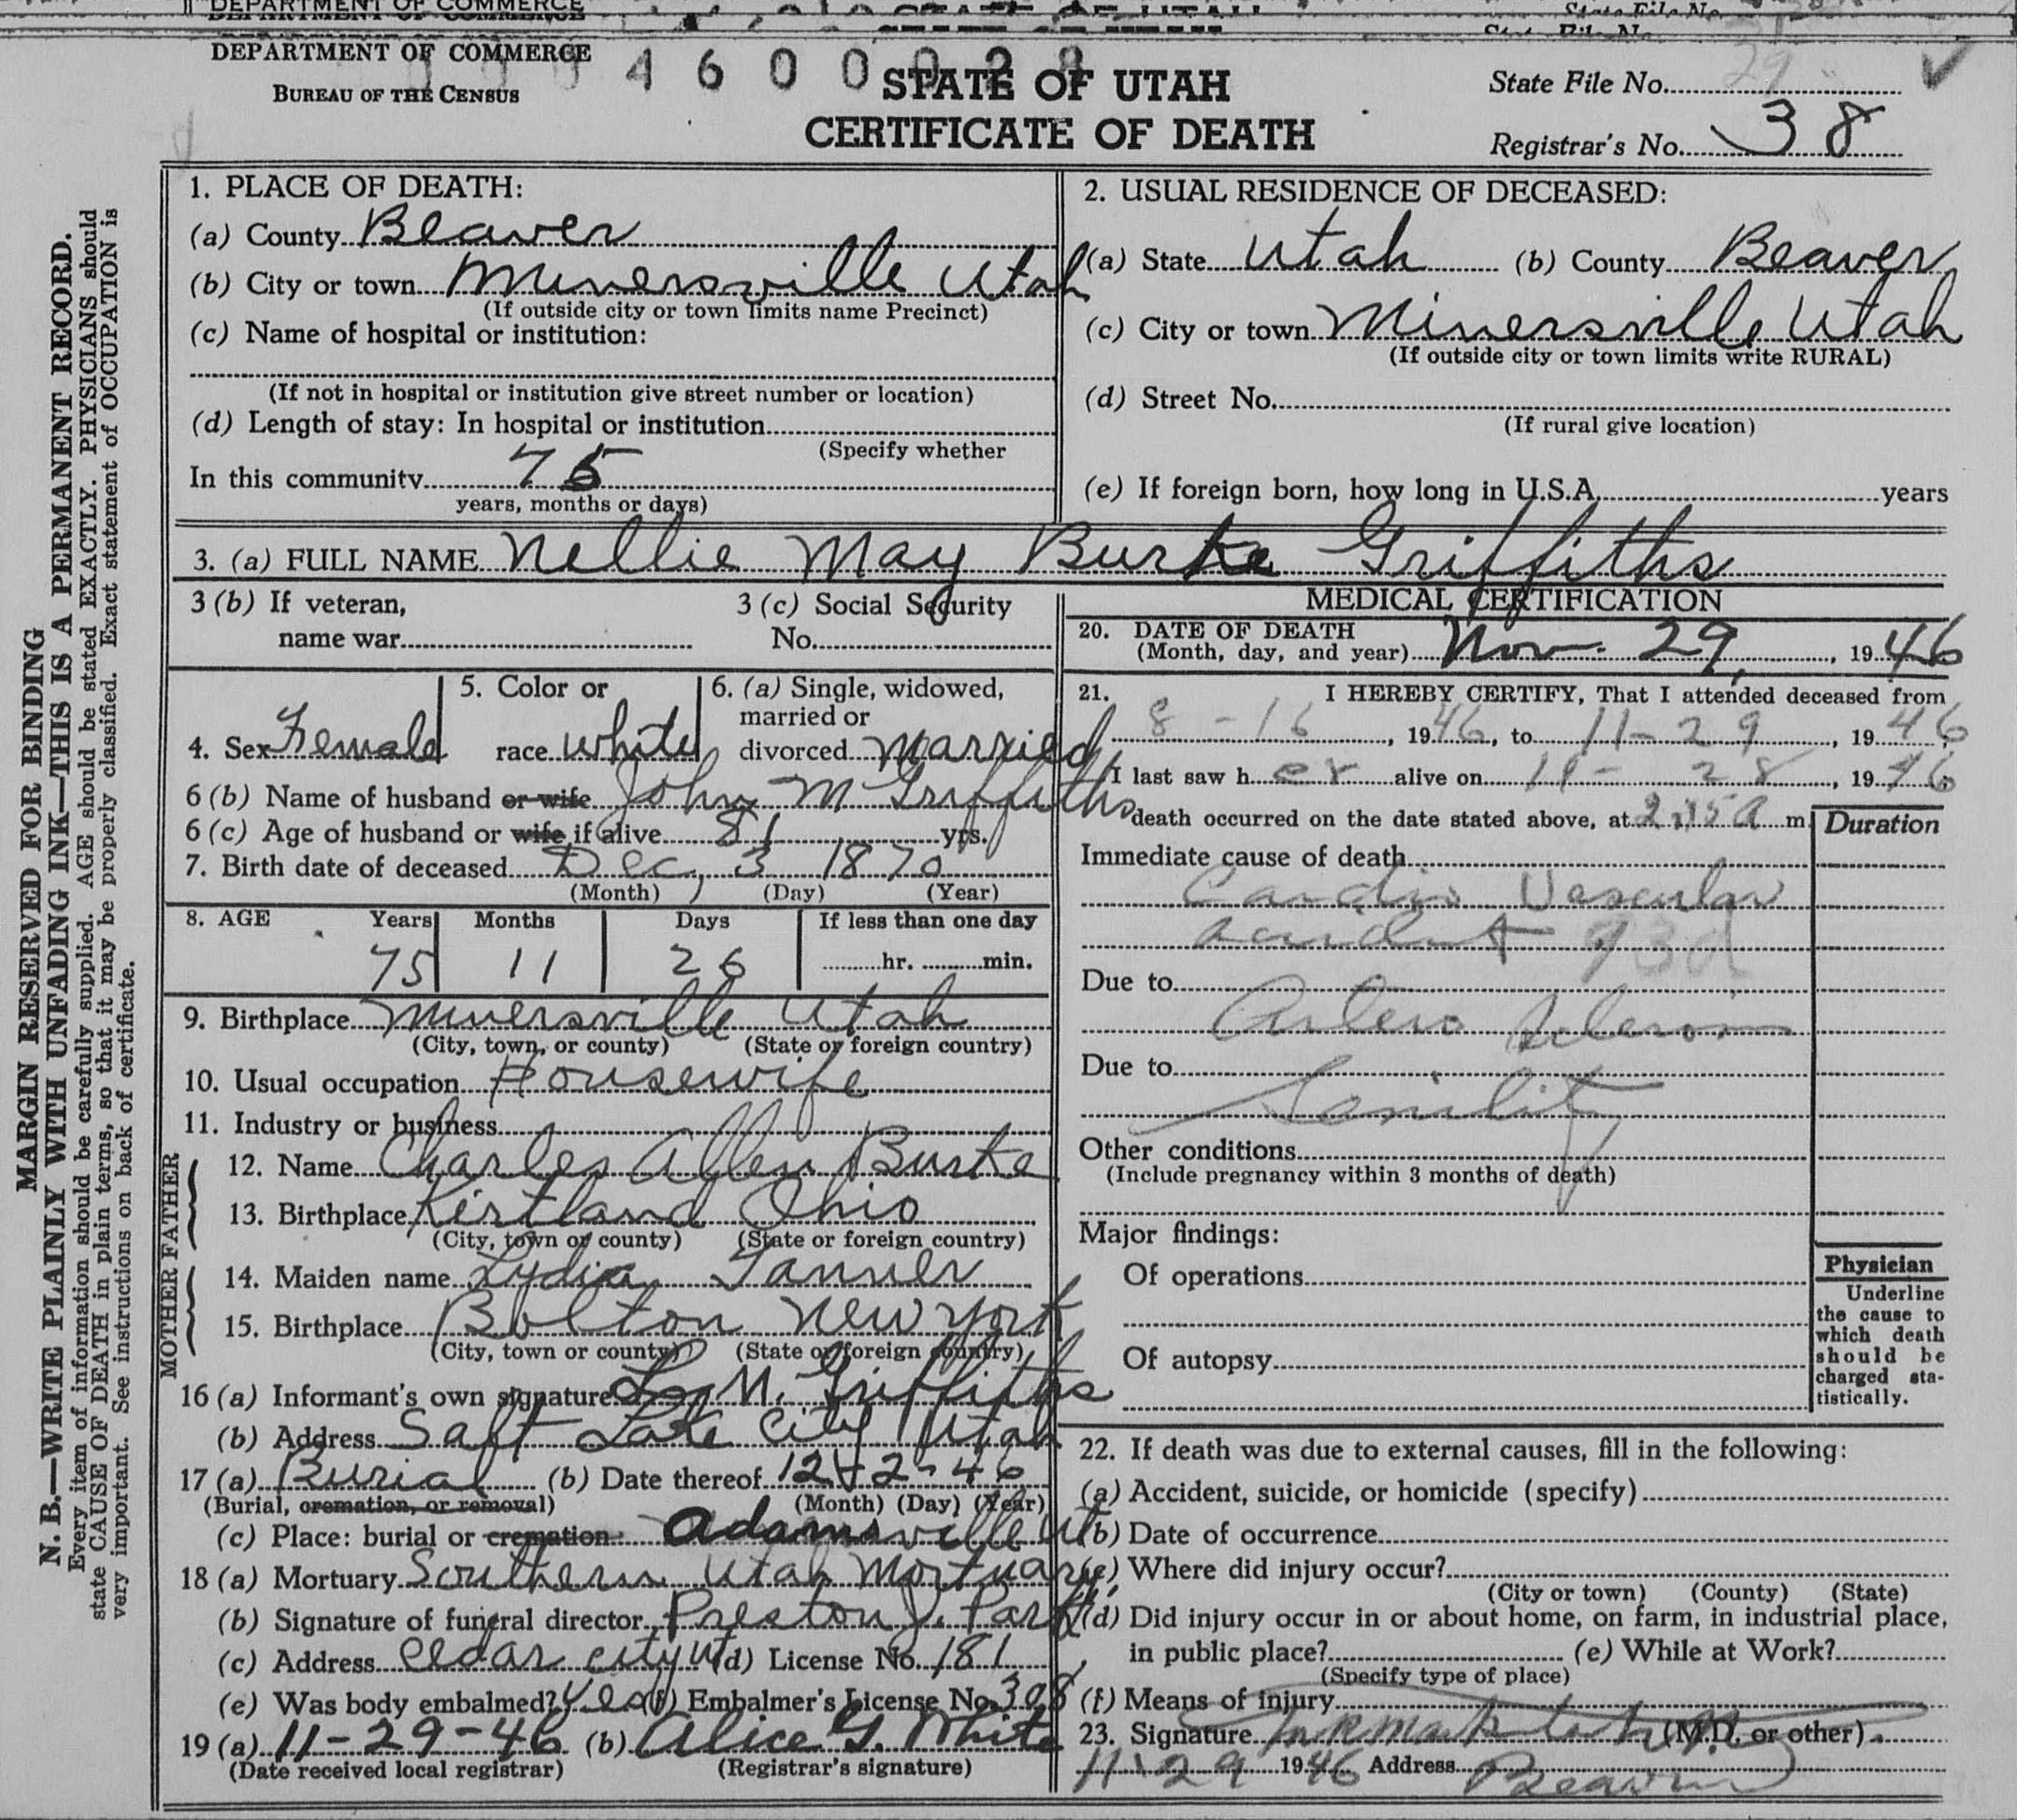 DEPARTMENT OF COMMERCE
BUREAU OF THE CENSUS
4 6 0 0
STATE OF UTAH
CERTIFICATE OF DEATH
State File No. 29
Registrar's No. 38
MARGIN RESERVED FOR BINDING
N. B.—WRITE PLAINLY WITH UNFADING INK—THIS IS A PERMANENT RECORD.
Every item of information should be carefully supplied. AGE should be stated EXACTLY. PHYSICIANS should
state CAUSE OF DEATH in plain terms, so that it may be properly classified. Exact statement of OCCUPATION is
very important. See instructions on back of certificate.
1. PLACE OF DEATH:
(a) County Beaver
(b) City or town Minersville Utah
(If outside city or town limits name Precinct)
(c) Name of hospital or institution:
(If not in hospital or institution give street number or location)
(d) Length of stay: In hospital or institution
(Specify whether
In this community 75
years, months or days)
2. USUAL RESIDENCE OF DECEASED:
(a) State Utah (b) County Beaver
(c) City or town Minersville Utah
(If outside city or town limits write RURAL)
(d) Street No.
(If rural give location)
(e) If foreign born, how long in U.S.A. years
3. (a) FULL NAME Nellie May Burke Griffiths
3 (b) If veteran,
name war
3 (c) Social Security
No.
4. Sex Female
5. Color or
race white
6. (a) Single, widowed,
married or
divorced married
6 (b) Name of husband or wife John M Griffiths
6 (c) Age of husband or wife if alive 81 yrs.
7. Birth date of deceased Dec, 3 1870
(Month) (Day) (Year)
8. AGE Years Months Days If less than one day
75 11 26 hr. min.
9. Birthplace Minersville Utah
(City, town, or county) (State or foreign country)
10. Usual occupation Housewife
11. Industry or business
FATHER
12. Name Charles Allen Burke
13. Birthplace Kirtland Ohio
(City, town or county) (State or foreign country)
MOTHER
14. Maiden name Lydia Tanner
15. Birthplace Bolton New York
(City, town or county) (State or foreign country)
16 (a) Informant's own signature M. Griffiths
(b) Address Salt Lake City Utah
17 (a) Burial (b) Date thereof 12-2-46
(Burial, cremation, or removal) (Month) (Day) (Year)
(c) Place: burial or cremation Adamsville Ut
18 (a) Mortuary Southern Utah Mortuary
(b) Signature of funeral director Preston J.
(c) Address Cedar City Ut (d) License No. 181
(e) Was body embalmed? Yes (f) Embalmer's License No. 308
19 (a) 11-29-46 (b) Alice G. White
(Date received local registrar) (Registrar's signature)
MEDICAL CERTIFICATION
20. DATE OF DEATH
(Month, day, and year) Nov. 29, 1946
21. I HEREBY CERTIFY, That I attended deceased from
8-16, 1946, to 11-29, 1946
I last saw her alive on 11-28, 1946;
death occurred on the date stated above, at 2:15 A m.
Duration
Immediate cause of death
Cardio Vascular
accident 93d
Due to
Arterio Sclerosis
Due to
Senility
Other conditions
(Include pregnancy within 3 months of death)
Major findings:
Of operations
Of autopsy
Physician
Underline
the cause to
which death
should be
charged sta-
tistically.
22. If death was due to external causes, fill in the following:
(a) Accident, suicide, or homicide (specify)
(b) Date of occurrence
(c) Where did injury occur?
(City or town) (County) (State)
(d) Did injury occur in or about home, on farm, in industrial place,
in public place? (e) While at Work?
(Specify type of place)
(f) Means of injury
23. Signature (M.D. or other)
11-29 1946 Address Beaver